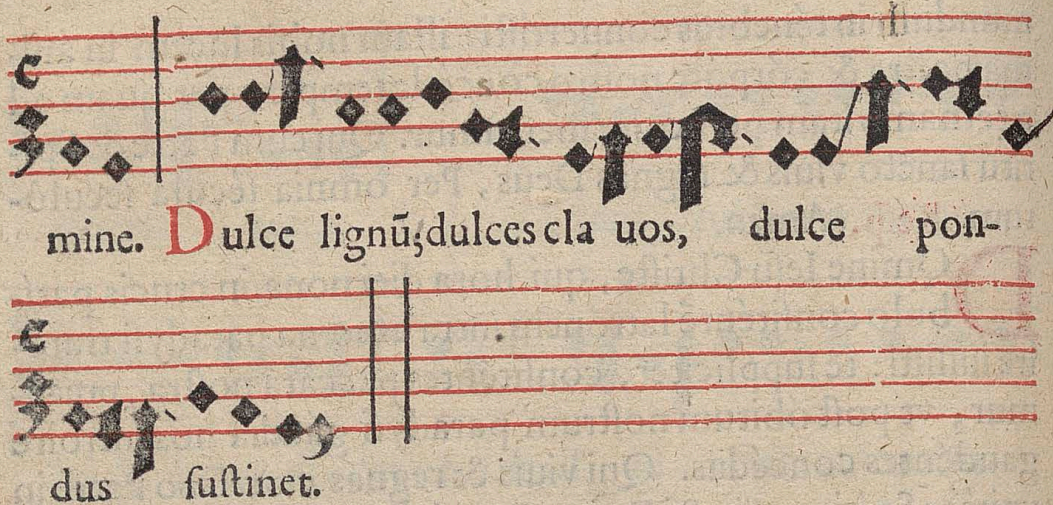 mine. Dulce lignū; dulces cla uos, dulce pon-
dus ſuſtinet.